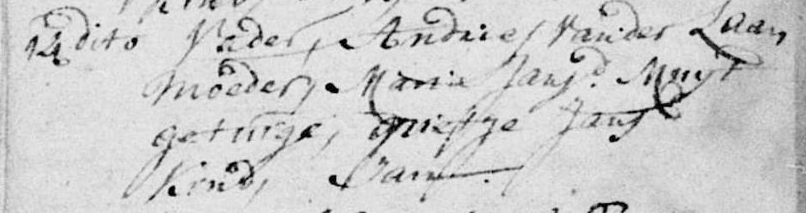 14 dito Vader, Andries Vander Laan
Moeder, Maria Jans d. Muijt
getuijge, grietje Jans
Kind, Jan